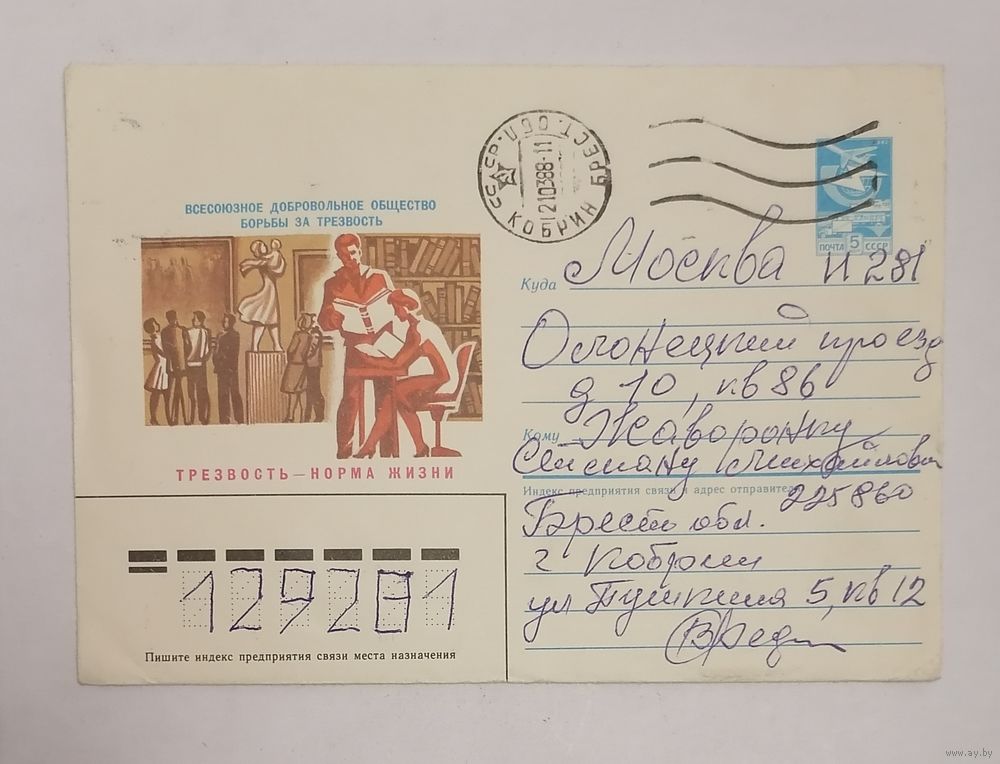 ВСЕСОЮЗНОЕ ДОБРОВОЛЬНОЕ ОБЩЕСТВО
БОРЬБЫ ЗА ТРЕЗВОСТЬ
ТРЕЗВОСТЬ — НОРМА ЖИЗНИ
СССР · БРЕСТ. ОБЛ.
1210388-11
КОБРИН
ПОЧТА 5 СССР
Куда Москва И 281
Олонецкий проезд
д 10, кв 86
Кому Жаворонку
Михайлович
Индекс предприятия связи и адрес отправителя 225860
Брест обл.
г Кобрин
ул Пушкина 5, кв 12
129281
Пишите индекс предприятия связи места назначения
www.ay.by